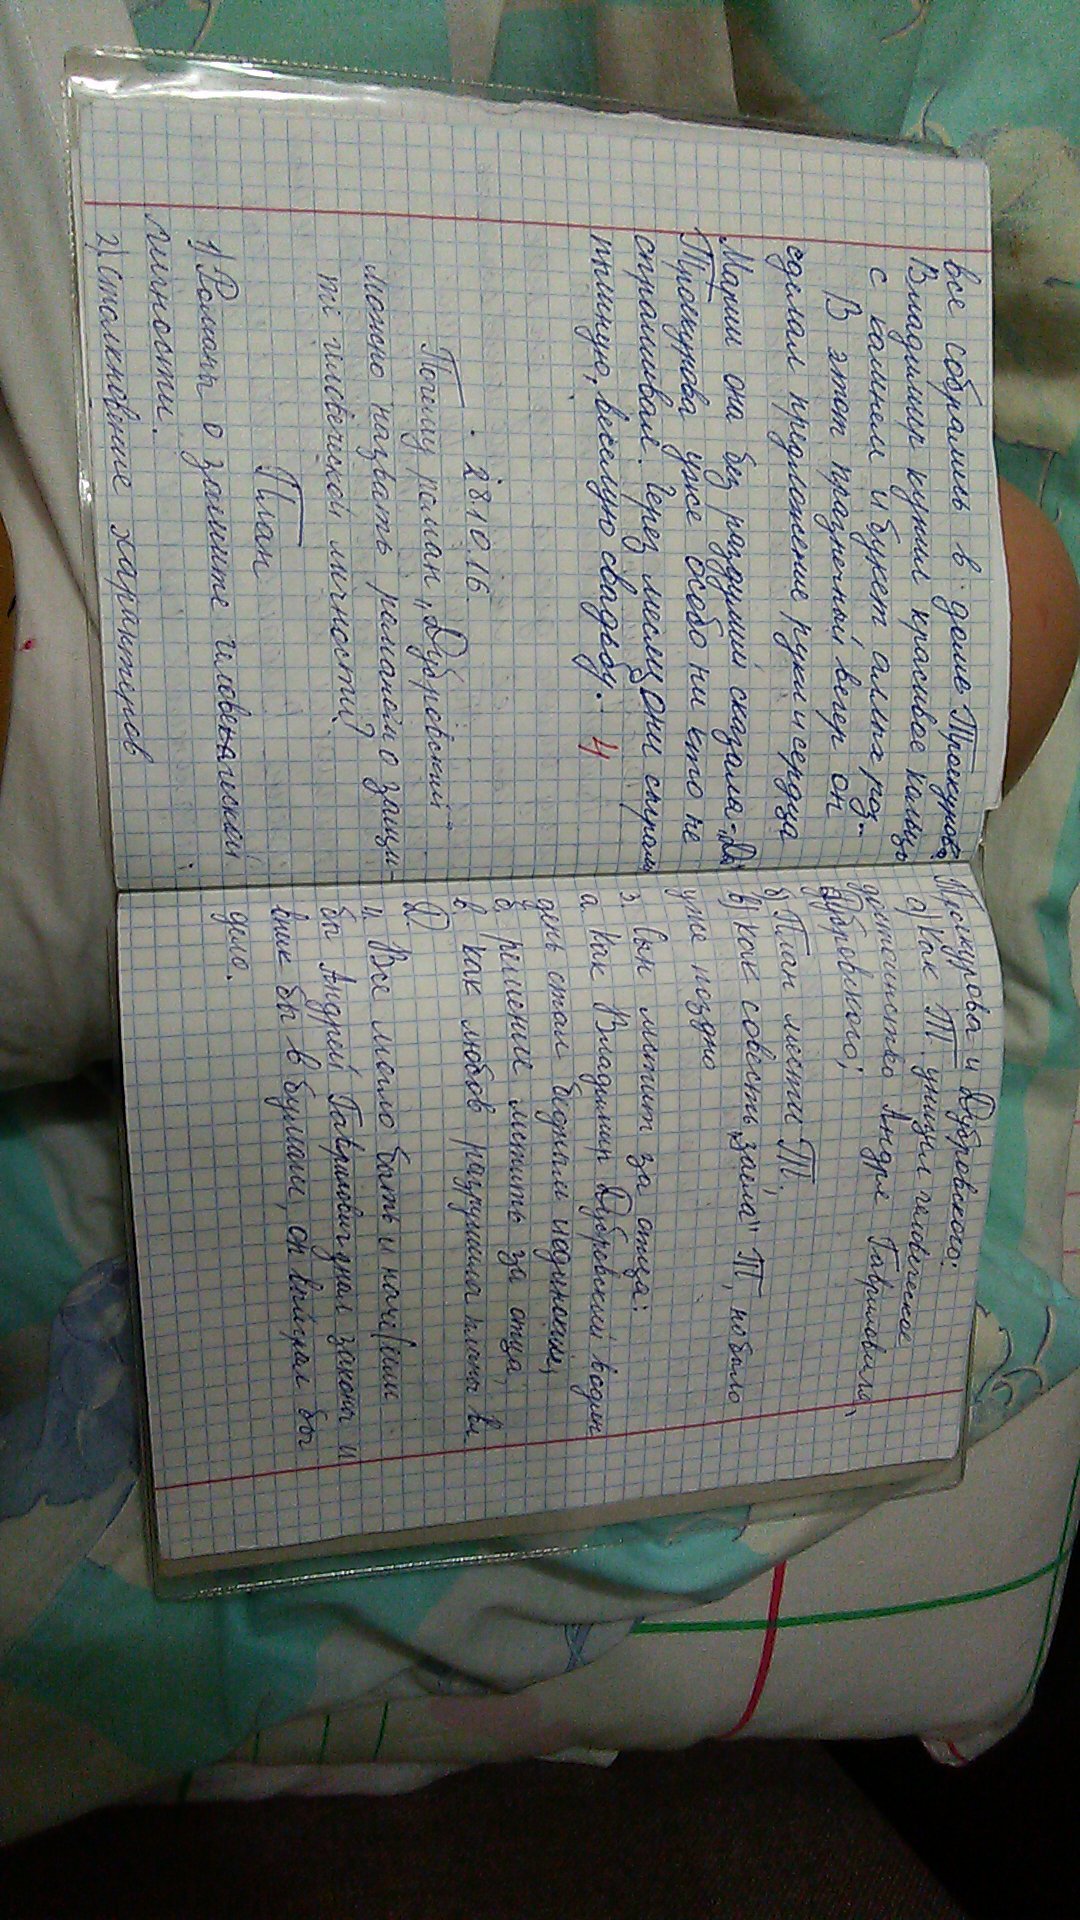 все собрались в доме Троекурова.
Владимир купил красивое кольцо
с камнем и букет алых роз.
В этот праздничный вечер он
сделал предложение руки и сердца
Марии она без раздумий сказала-„Да“
Троекурова уже особо ни кто не
спрашивал. Через месяц они сыграли
пышную, веселую свадьбу. 4
28.10.16.
Почему роман „Дубровский“
можно назвать романом о защи-
те человеческой личности?
План
1) Роман о защите человеческой
личности.
2) столкновение характеров
Троекурова и Дубровского:
а) Как Т. унизил человеческое
достоинство Андрея Гавриловича
Дубровского;
б) План мести Т.;
в) как совесть „заела“ Т, но было
уже поздно
3. Сын мстит за отца:
а. Как Владимир Дубровский в один
день стал бедным и одиноким,
б. решение мстить за отца,
в. как любов разрушила планы вл
Д.
4. Все могло быть и наче (если
бы Андрей Гаврилович знал законы и
вник бы в бумаги, он выйграл бы
дело.